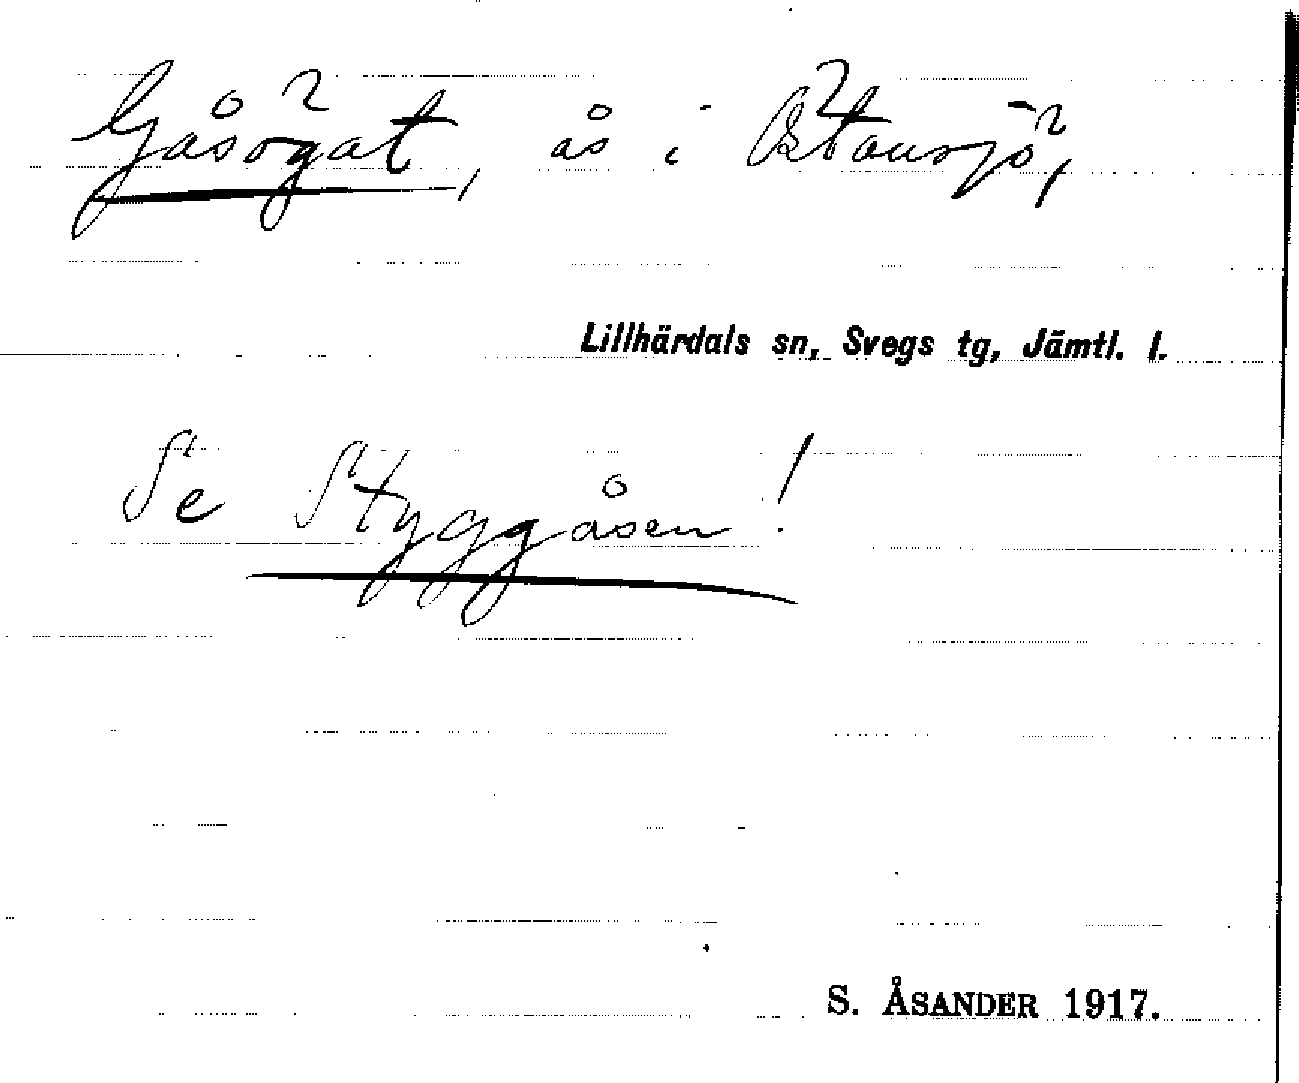 Gåsögat, ås i Östansjö,
Lillhärdals sn, Svegs tg, Jämtl. l.
Se Styggåsen!
S. ÅSANDER 1917.